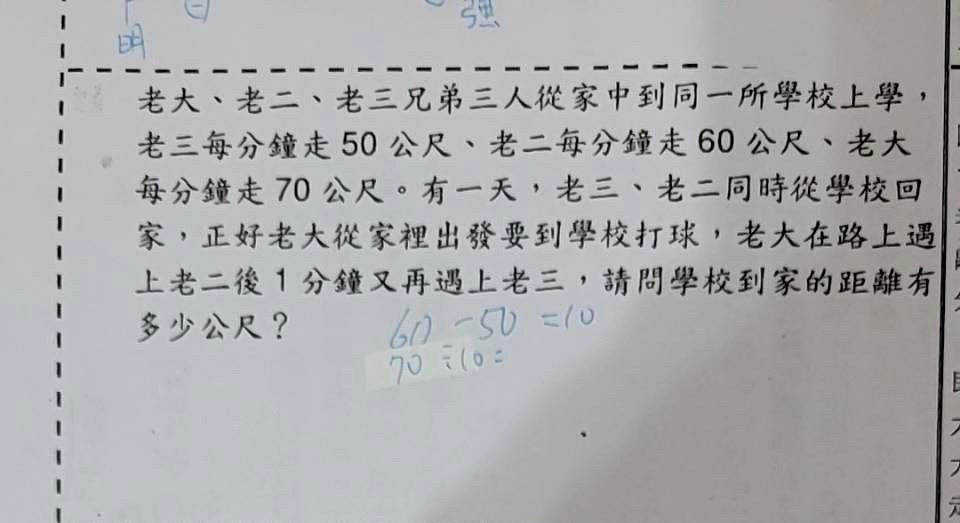 明
強
老大、老二、老三兄弟三人從家中到同一所學校上學，
老三每分鐘走 50 公尺、老二每分鐘走 60 公尺、老大
每分鐘走 70 公尺。有一天，老三、老二同時從學校回
家，正好老大從家裡出發要到學校打球，老大在路上遇
上老二後 1 分鐘又再遇上老三，請問學校到家的距離有
多少公尺？
60 - 50 = 10
70 ÷ 10 =